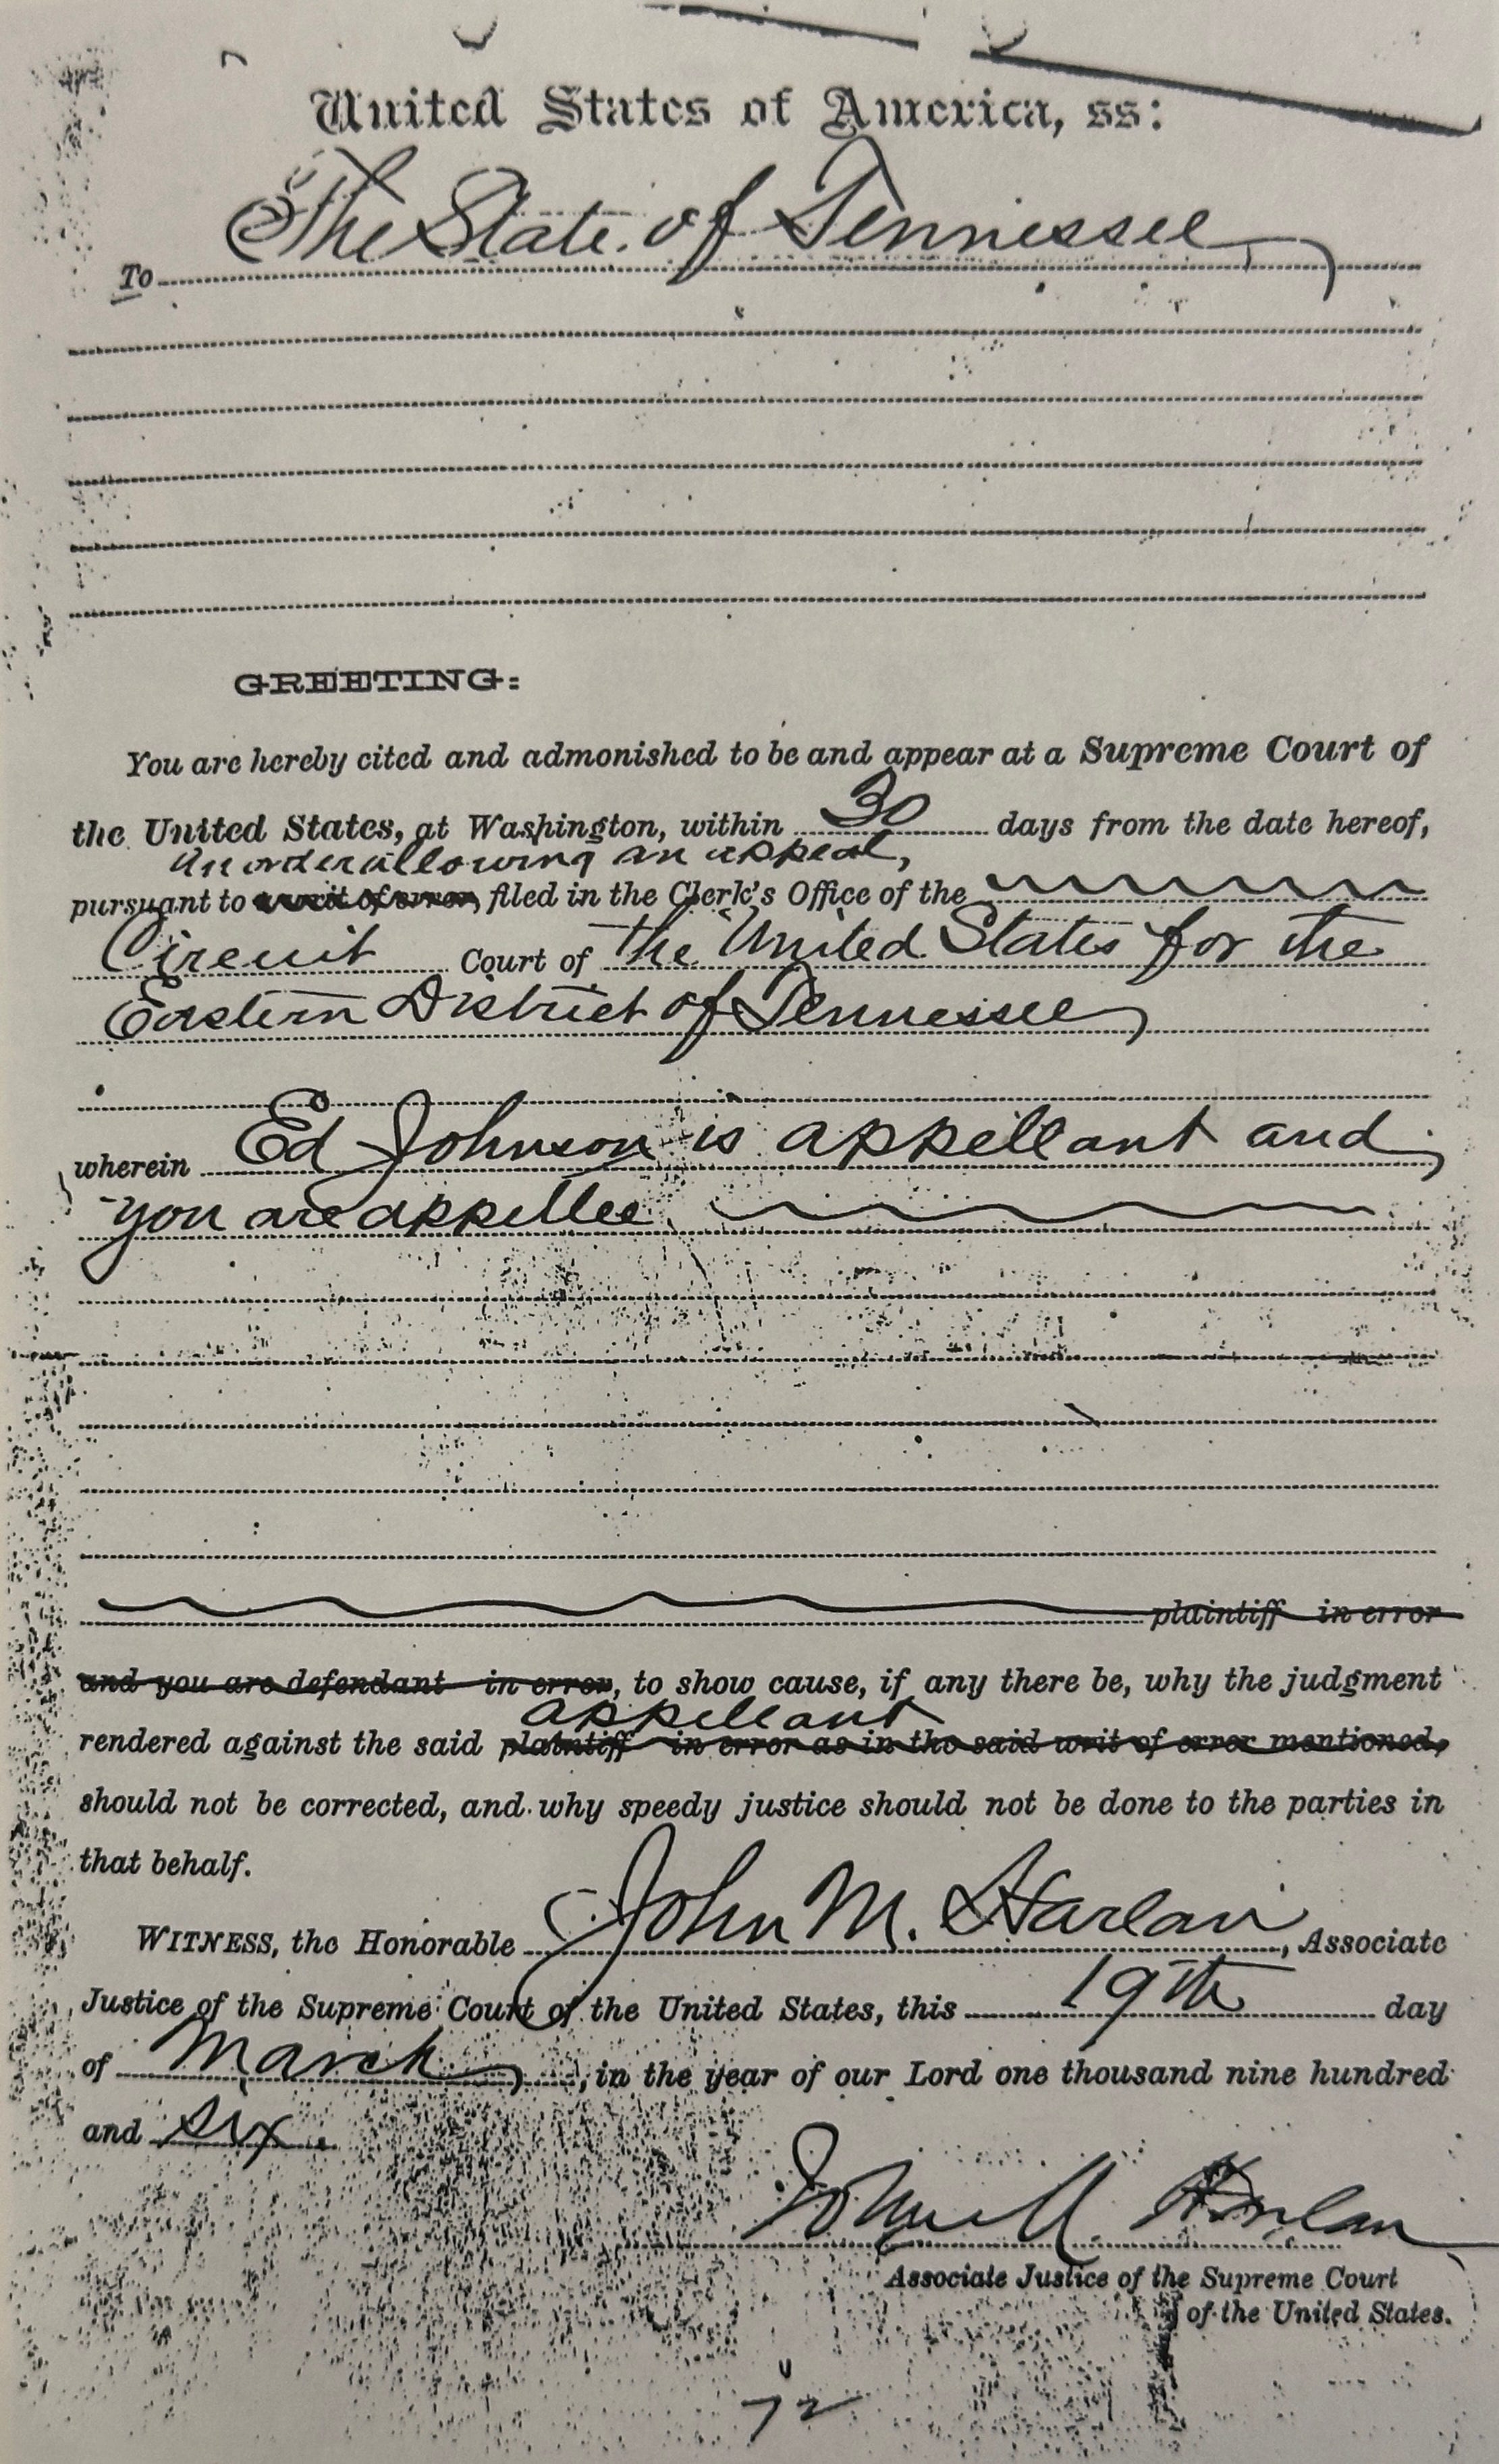 United States of America, ss:
To The State of Tennessee,
GREETING:
You are hereby cited and admonished to be and appear at a Supreme Court of
the United States, at Washington, within 30 days from the date hereof,
an order allowing an appeal,
pursuant to a writ of error, filed in the Clerk's Office of the
Circuit Court of the United States for the
Eastern District of Tennessee,
wherein Ed Johnson is appellant and
you are appellee.
plaintiff in error
and you are defendant in error, to show cause, if any there be, why the judgment
appellant
rendered against the said plaintiff in error as in the said writ of error mentioned,
should not be corrected, and why speedy justice should not be done to the parties in
that behalf.
WITNESS, the Honorable John M. Harlan, Associate
Justice of the Supreme Court of the United States, this 19th day
of March, in the year of our Lord one thousand nine hundred
and six.
John M. Harlan
Associate Justice of the Supreme Court
of the United States.
72